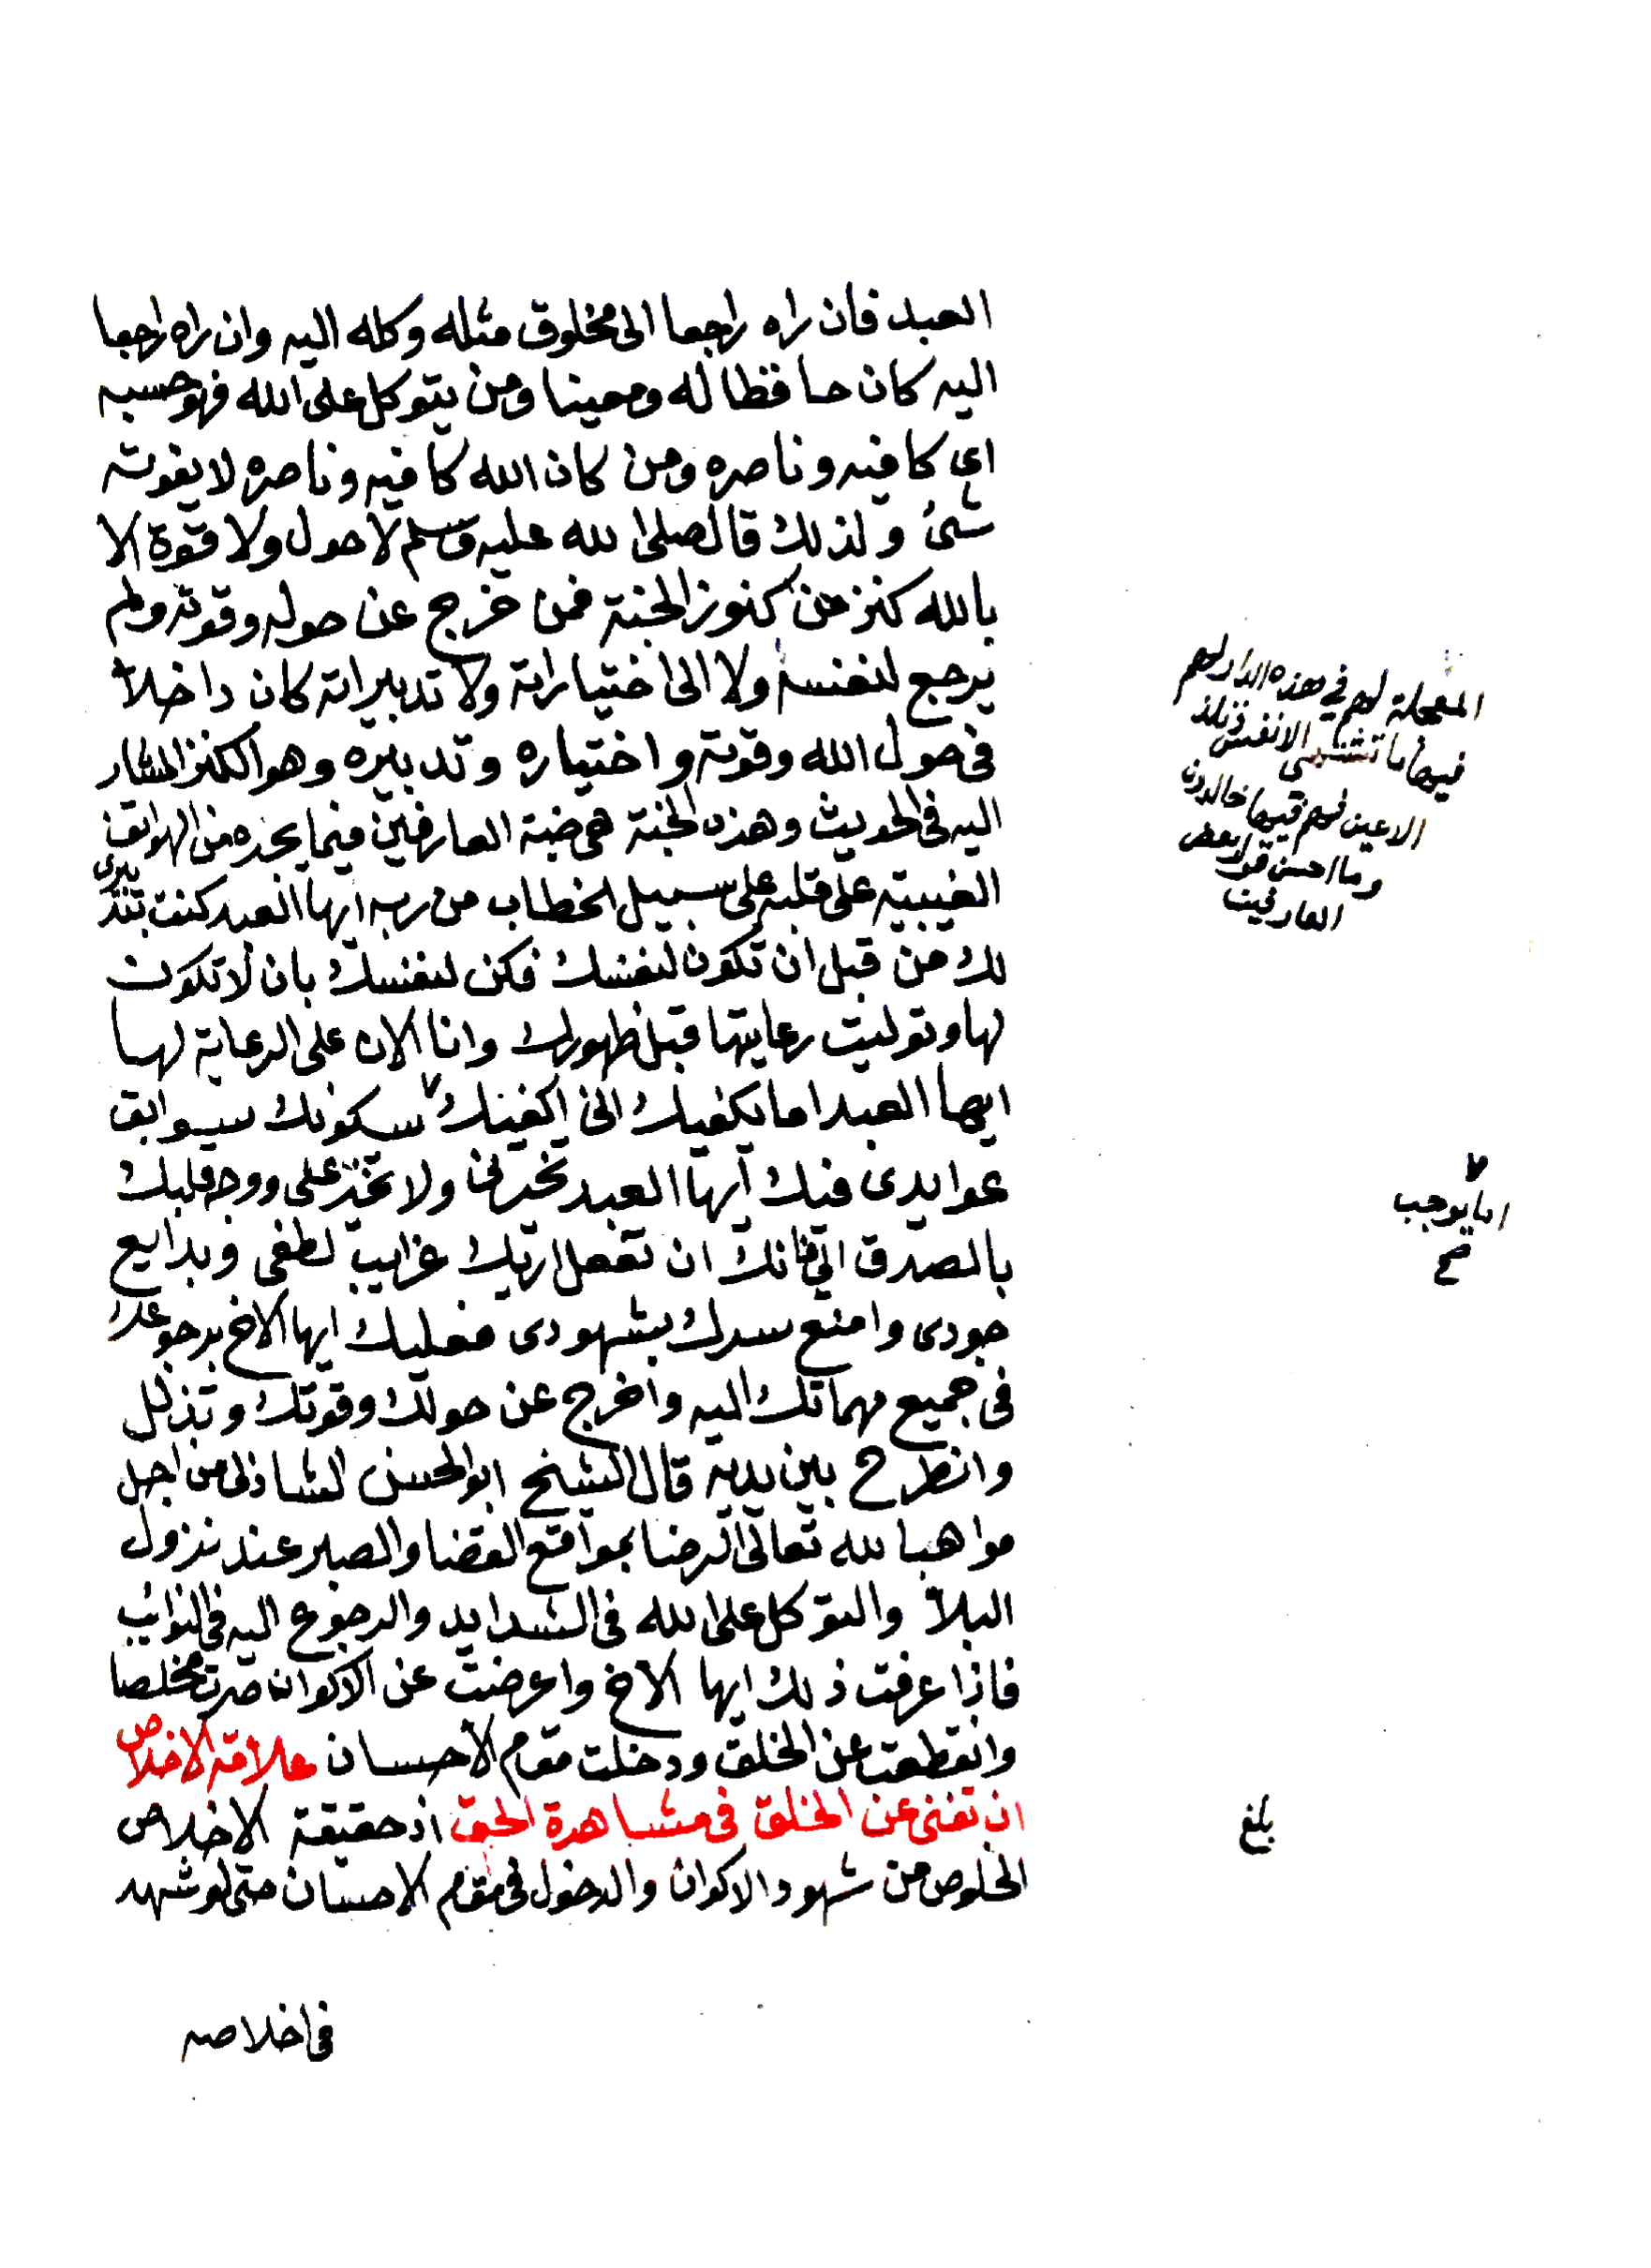 العبد فان راه راجعا الى مخلوق مثله وكله اليه وان راه راجعا
اليه كان حافظا له ومعينا ومن يتوكل على الله فهو حسبه
اى كافيه وناصره ومن كان الله كافيه وناصره لا يفوته
شئ ولذلك قال صلى الله عليه وسلم لا حول ولا قوة الا
بالله كنز من كنوز الجنة فمن خرج عن حوله وقوته ولم
يرجع لنفسه ولا الى اختياراته ولا تدبيراته كان داخلا
فى حول الله وقوته واختياره وتدبيره وهو الكنز المشار
اليه فى الحديث وهذه الجنة هى جنة العارفين فيما يجده من الهواتف
الغيبية على قلبه على سبيل الخطاب من ربه ايها العبد كنت بتدبيرى
لك من قبل ان تكون لنفسك فكن لنفسك بان لا تكون
لها وتوليت رعايتها قبل ظهورك وانا الان على الرعاية لها
ايها العبد اما يكفيك انى اكفيتك سكونك سوابق
عوايدى فيك ايها العبد تخيرنى ولا تتخير على ووجه قلبك
بالصدق الى فانك ان تفعل اريك غرايب لطفى وبدايع
جودى وامتع سرك بشهودى فعليك ايها الاخ برجوعك
فى جميع مهماتك اليه واخرج عن حولك وقوتك وتذلل
وانطرح بين يديه قال الشيخ ابو الحسن الشاذلى من اجل
مواهب الله تعالى الرضا بمواقع القضا والصبر عند نزول
البلا والتوكل على الله فى الشدايد والرجوع اليه فى النوايب
فاذا عرفت ذلك ايها الاخ واعرضت عن الاكوان صرت مخلصا
وانقطعت عن الخلق ودخلت مقام الاحسان علامة الاخلاص
ان تفنى عن الخلق فى مشاهدة الحق اذ حقيقة الاخلاص
الخلوص من شهود الاكوان والدخول فى مقام الاحسان حتى لو شهد
فى اخلاصه
المعجلة لهم في هذه الدار لهم
فيها ما تشتهى الانفس وتلذ
الاعين لهم فيها خالدون
وما احسن قول بعض
العارفين
اما يوجب
صح
بلغ